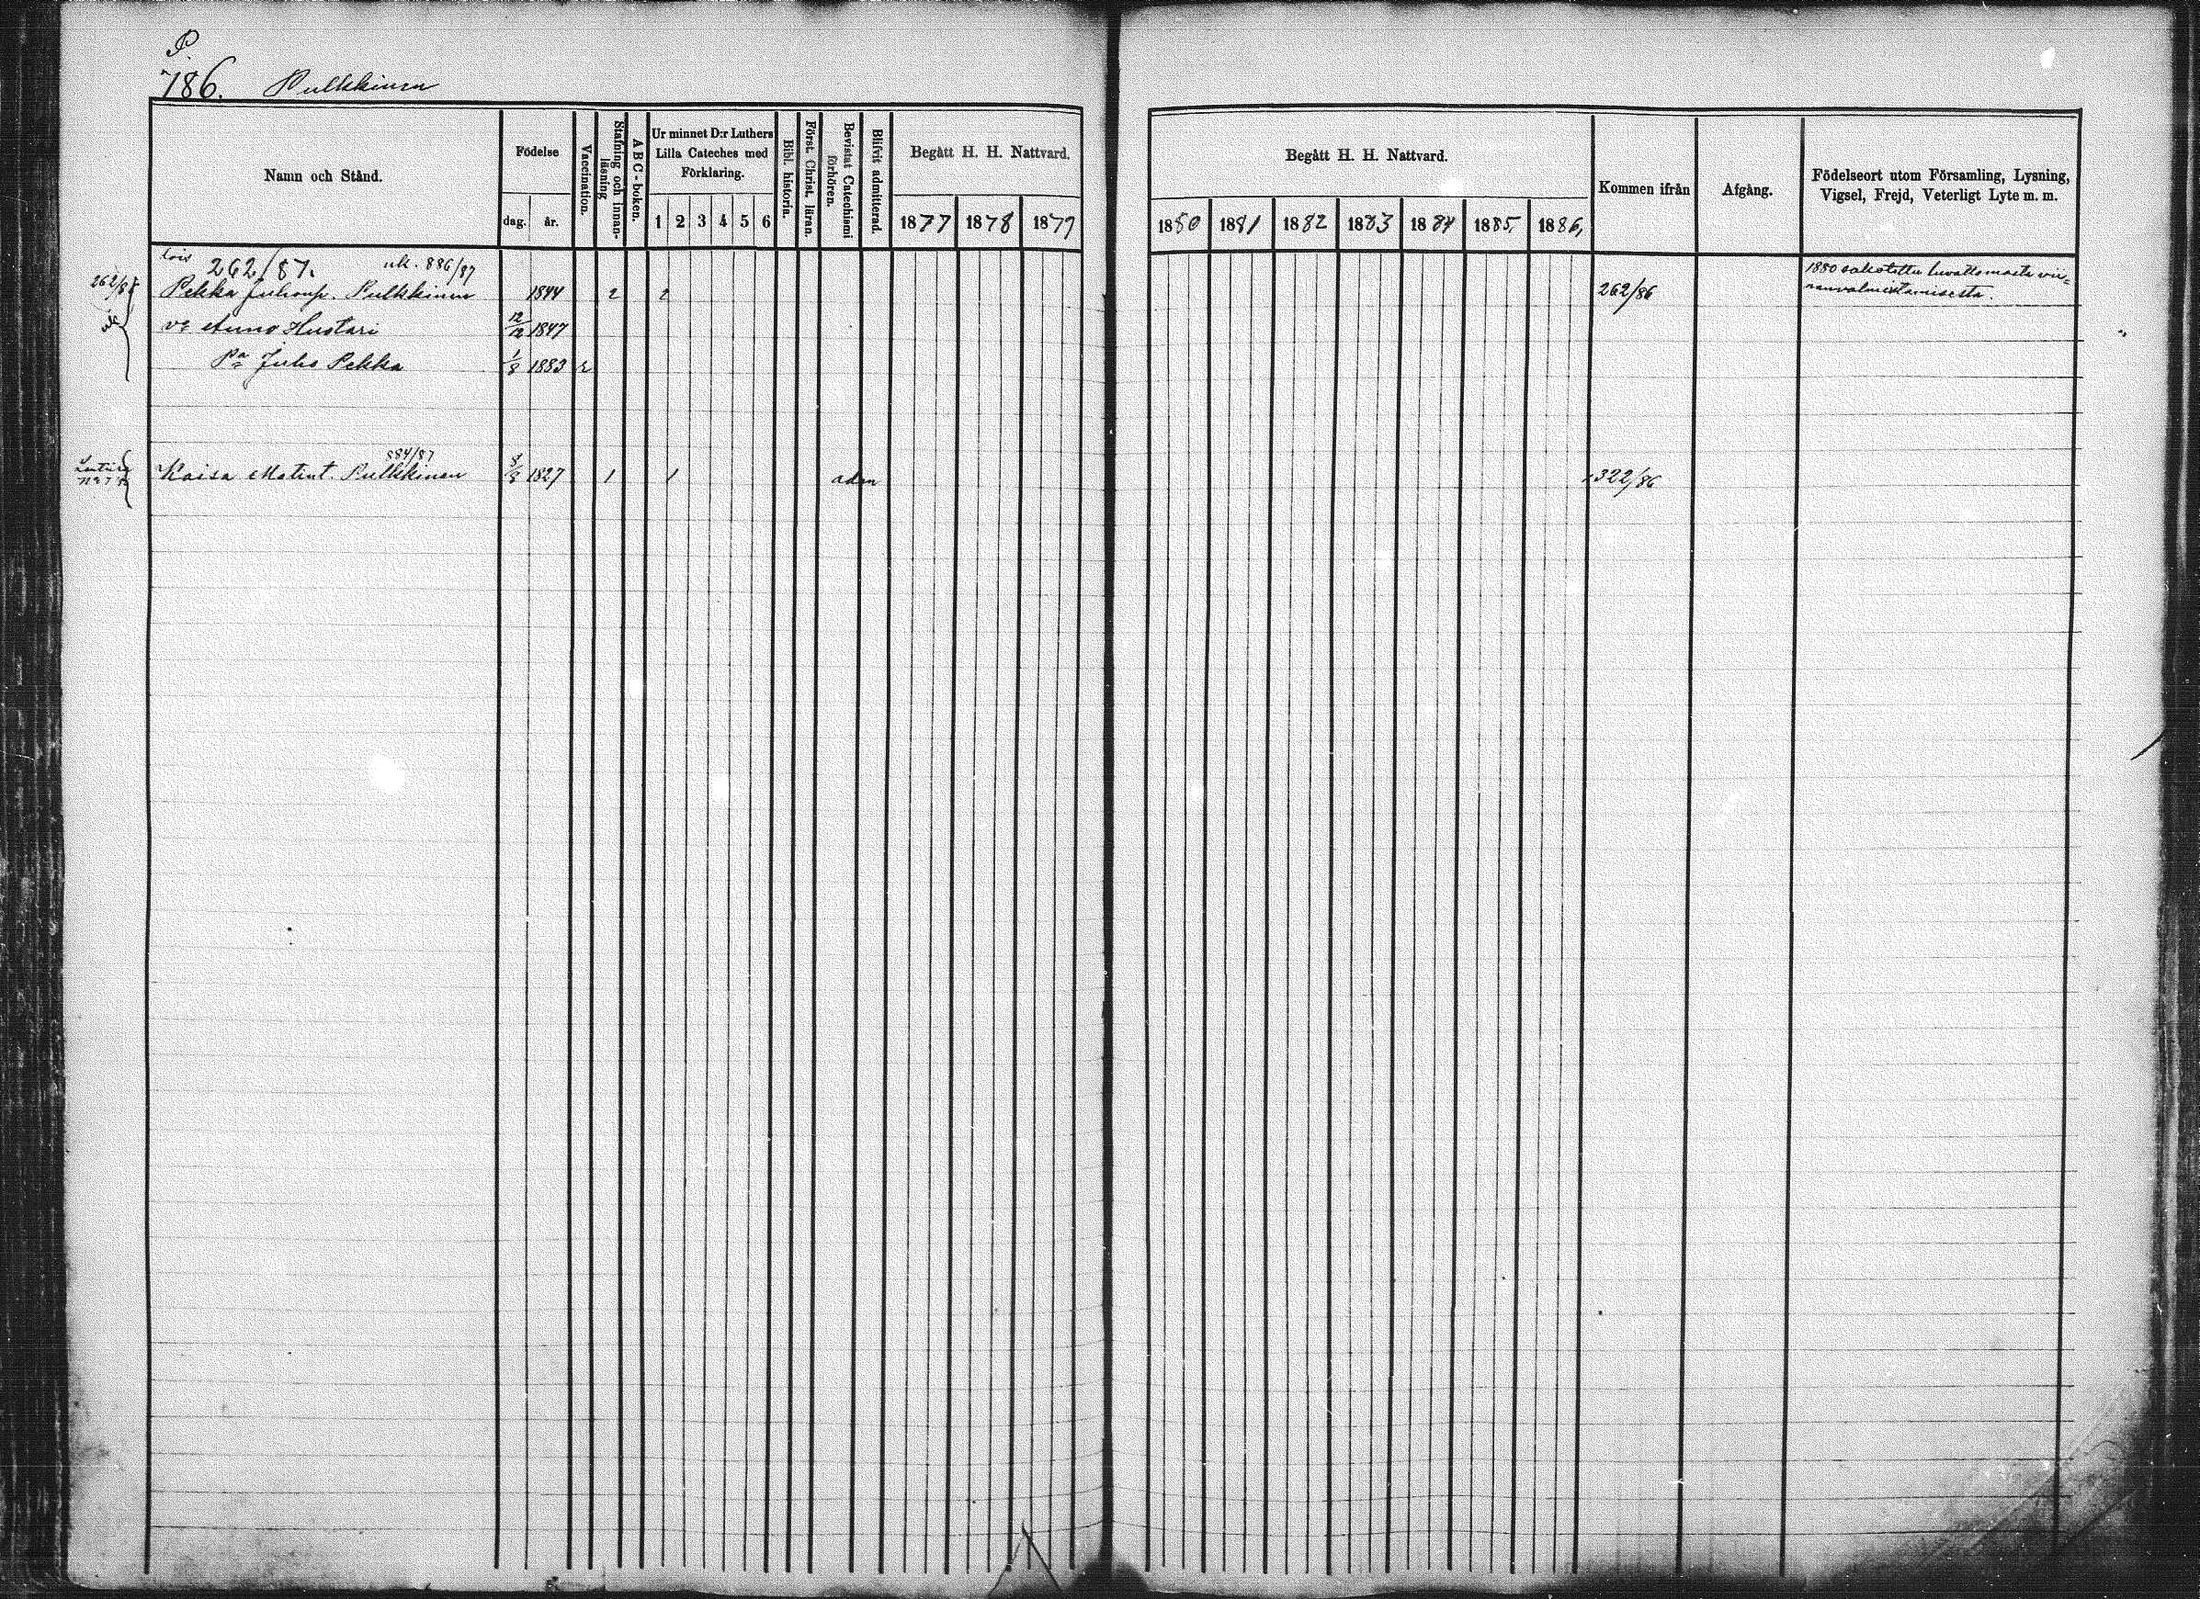 P.
786. Pulkkinen
Namn och Stånd.
Födelse
dag. år.
Vaccination.
Stafning och innanläsning
ABC-boken.
Ur minnet D:r Luthers
Lilla Cateches med
Förklaring.
1 2 3 4 5 6
Bibl. historia.
Först. Christ. läran.
Bevistat Catechismi förhören.
Blifvit admitterad.
Begått H. H. Nattvard.
1877 1878 1879
Begått H. H. Nattvard.
1880 1881 1882 1883 1884 1885, 1886,
Kommen ifrån
Afgång.
Födelseort utom Församling, Lysning,
Vigsel, Frejd, Veterligt Lyte m. m.
lois 262/87. uk. 886/87
262/87 Pekka Juhonp. Pulkkinen 1844 2 2 262/86 1880 sakotettu luvattomasta vii-
nanvalmistamisesta.
vo Anna Hustari 12/12 1847
Pa Juho Pekka 1/8 1883 r
884/87
Kaisa Matint. Pulkkinen 1827 1 1 adm 322/86